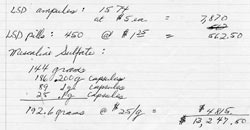 LSD ampules: 1574
at $5 ea = 7,870
LSD pills: 450 @ $1.25 = 562.50
Mescaline Sulfate:
144 grams
196 200 g capsules
89 capsules
25 capsules
192.6 grams @ $25/g = $4815
$13,247.50